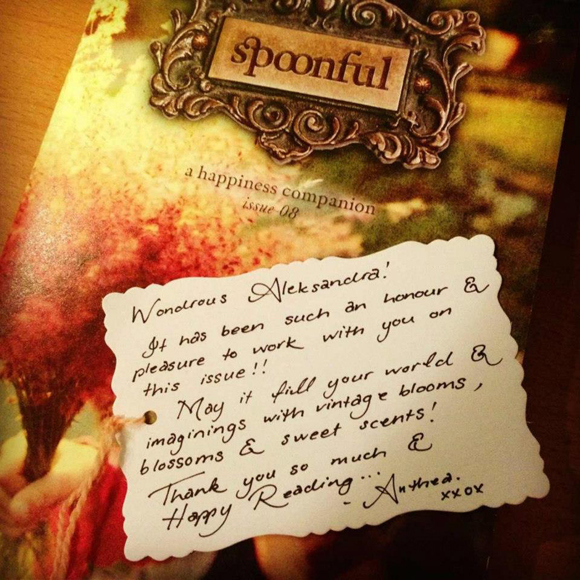 spoonful
a happiness companion
issue 08
Wondrous Aleksandra!
It has been such an honour &
pleasure to work with you on
this issue!!
May it fill your world &
imaginings with vintage blooms,
blossoms & sweet scents!
Thank you so much &
Happy Reading...
- Anthea.
xxox